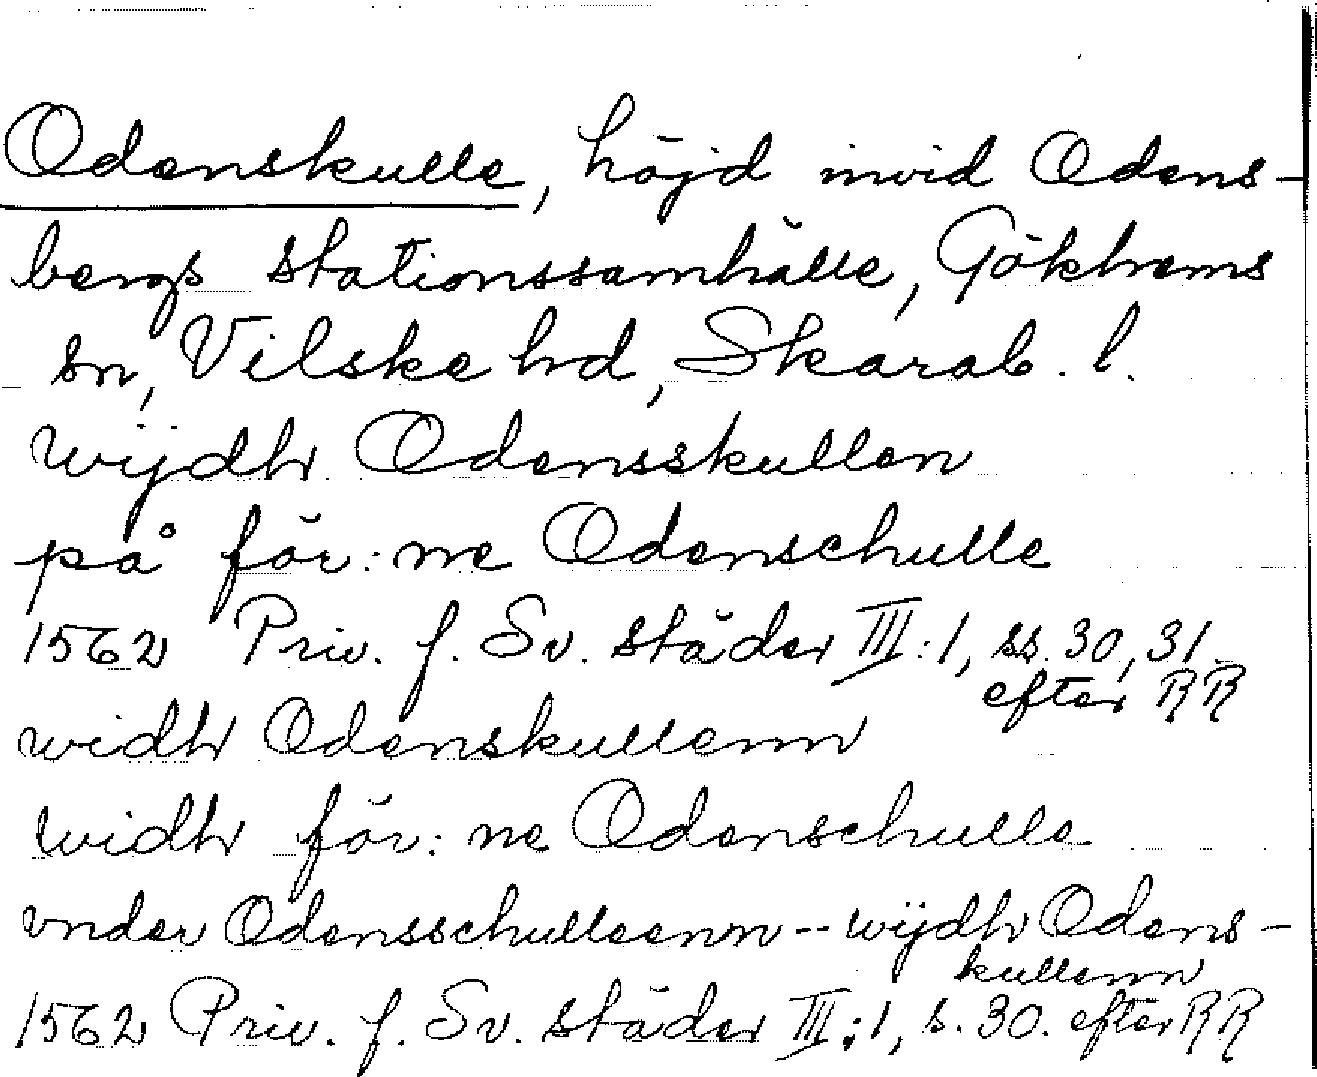 Odenskulle, höjd invid Odens-
bergs stationssamhälle, Gökhems
sn, Vilske hd, Skarab. l.
wijdh Odensskullen
på för:ne Odenschulle
1562 Priv. f. Sv. städer III:1, ss. 30, 31.
efter RR
widh Odenskullenn
widh för:ne Odenschulle
vnder Odensschulleenn -- wijdh Odens-
kullenn
1562 Priv. f. Sv. städer III:1, s. 30. efter RR